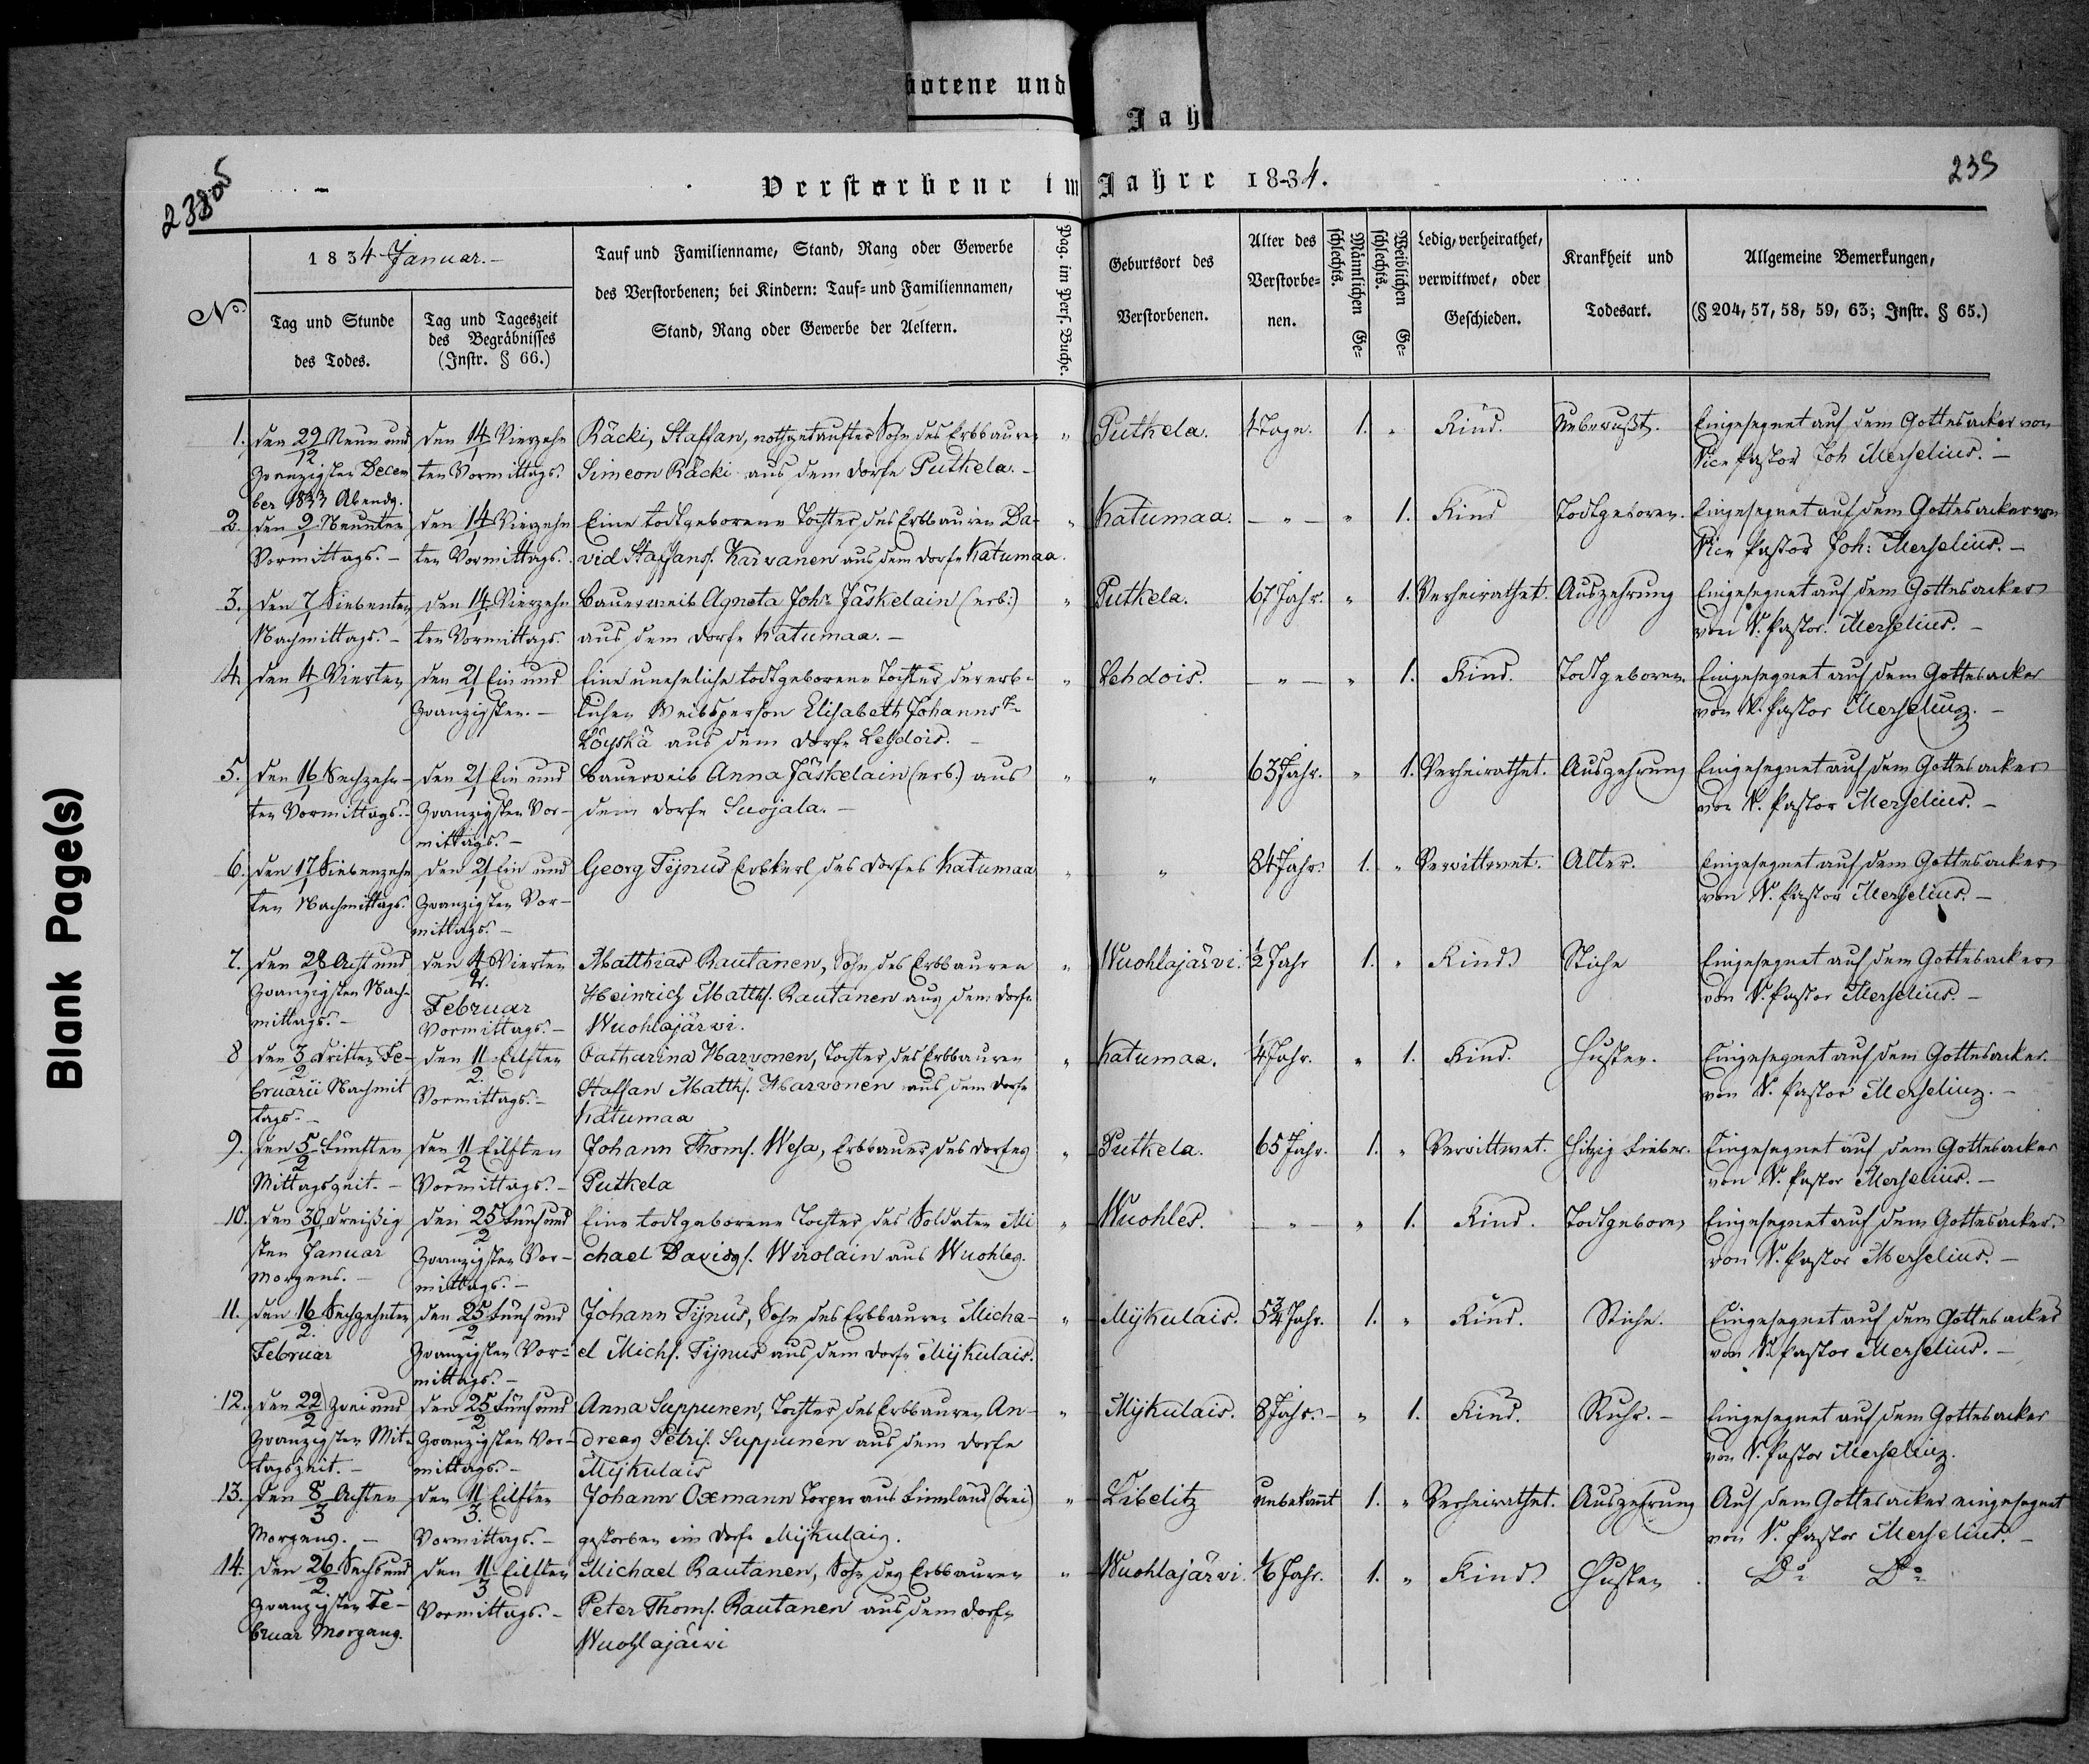 botene und
Jah
23805
239
Verstorbene im Jahre 1834.
Blank Page(s)
No
1834 Januar.-
Tag und Stunde
des Todes.
Tag und Tageszeit
des Begräbnisses
(Instr. § 66.)
Tauf und Familienname, Stand, Rang oder Gewerbe
des Verstorbenen; bei Kindern: Tauf- und Familiennamen,
Stand, Rang oder Gewerbe der Aeltern.
Pag. im Pers. Buche.
Geburtsort des
Verstorbenen.
Alter des
Verstorbe-
nen.
Männlichen Ge-
schlechts.
Weiblichen Ge-
schlechts.
Ledig, verheirathet,
verwittwet, oder
Geschieden.
Krankheit und
Todesart.
Allgemeine Bemerkungen,
(§ 204, 57, 58, 59, 63; Instr. § 65.)
1. den 29/12 Neun und
Zwanzigsten Decem
ber 1833 Abends.
den 14/1 Vierzehn
ten Vormittags.
Räcki, Staffan, nothgetaufter Sohn des Erbbauren
Simeon Räcki aus dem Dorfe Putkela.-
" Putkela. 4 Tage. 1. " Kind. Unbewußt.
Eingesegnet auf dem Gottesacker von
Vice Pastor Joh Merselius.-
2. den 9/1 Neunten
Vormittags.-
den 14/1 Vierzehn
ten Vormittags.
Eine todtgeborene Tochter des Erbbauren Da-
vid Staffans. Karvanen aus dem Dorfe Katumaa.
" Katumaa. -"- " 1. Kind Todtgeboren.
Eingesegnet auf dem Gottesacker von
Vice Pastor Joh: Merselius.-
3. den 7/1 Siebenten
Nachmittags.-
den 14/1 Vierzehn
ten Vormittags.
Bauerweib Agneta Johr Jäskelain (erb:)
aus dem Dorfe Katumaa.-
" Putkela. 67 Jahr. " 1. Verheirathet. Auszehrung
Eingesegnet auf dem Gottesacker
von V. Pastor. Merselius.-
4. den 4/1 Vierten
den 21/1 Ein und
Zwanzigsten.-
Eine uneheliche todtgeborene Tochter der erb-
lichen Weibsperson Elisabeth Johannstr
Löyskä aus dem Dorfe Lehdois.-
" Lehdois. -"- " 1. Kind. Todtgeboren.
Eingesegnet auf dem Gottesacker
von V. Pastor Merselius.-
5. den 16/1 Sechzehn-
ten Vormittags.-
den 21/1 Ein und
Zwanzigsten Vor-
mittags.-
Bauerweib Anna Jäskelain (erb:) aus
dem Dorfe Suojala.-
" " 63 Jahr. " 1. Verheirathet. Auszehrung
Eingesegnet auf dem Gottesacker
von V. Pastor Merselius.-
6. den 17/1 Siebenzehn
ten Nachmittags.
den 21/1 Ein und
Zwanzigsten Vor-
mittags.-
Georg Tijnus Erbkerl des Dorfes Katumaa
" " 84 Jahr. 1. " Verwittwet. Alter.
Eingesegnet auf dem Gottesacker
von V. Pastor Merselius.-
7. den 28/1 Acht und
Zwanzigsten Nach-
mittags.-
den 4/2. Vierten
Februar
Vormittags.-
Matthias Rautanen, Sohn des Erbbauren
Heinrich Matths. Rautanen aus dem Dorfe
Wuohlajärvi.
" Wuohlajärvi. 1/2 Jahr 1. " Kind. Stiche
Eingesegnet auf dem Gottesacker
von V. Pastor Merselius.-
8 den 3/2 Dritten Fe-
bruarii Nachmit
tags.-
den 11/2. Eilften
Vormittags.-
Catharina Harvonen, Tochter des Erbbauren
Staffan Matths. Harvonen aus dem Dorfe
Katumaa
" Katumaa. 4 Jahr. " 1. Kind. Husten.
Eingesegnet auf dem Gottesacker.
von V. Pastor Merselius.-
9. den 5/2 Fünften
Mittagszeit.-
den 11/2 Eilften
Vormittags.-
Johann Thoms. Wesa, Erbbauer des Dorfes
Putkela
" Putkela. 65 Jahr. 1. " Verwittwet. Hitzig Fieber.
Eingesegnet auf dem Gottesacker
von V. Pastor Merselius.-
10. den 30/1 Dreißig
sten Januar
Morgens.-
den 25/2 Fünf und
Zwanzigsten Vor-
mittags.-
Eine todtgeborene Tochter des Soldaten Mi
chael Davids. Wirolain aus Wuohles.
" Wuohles. -"- " 1. Kind. Todtgeboren
Eingesegnet auf dem Gottesacker.
von V. Pastor Merselius.-
11. den 16/2. Sechzehnten
Februar
den 25/2 Fünf und
Zwanzigsten Vor-
mittags.-
Johann Tijnus, Sohn des Erbbauren Micha-
el Michs. Tijnus aus dem Dorfe Mijkulais.
" Mijkulais. 5 3/4 Jahr. 1. " Kind. Stiche.
Eingesegnet auf dem Gottesacker
von V. Pastor Merselius.-
12. den 22/2 Zwei und
Zwanzigsten Mit-
tagszeit.-
den 25/2 Fünf und
Zwanzigsten Vor-
mittags.-
Anna Suppunen, Tochter des Erbbauren An-
dreas Petris. Suppunen aus dem Dorfe
Mijkulais
" Mijkulais. 8 Jahr.- " 1. Kind. Ruhr.-
Eingesegnet auf dem Gottesacker
von V. Pastor Merselius.
13. den 8/3 Achten
Morgens.-
den 11/3. Eilften
Vormittags.-
Johann Oxmann Torper aus Finnland (frei)
gestorben im Dorfe Mijkulais.
" Libelitz unbekannt 1. " Verheirathet. Auszehrung
Auf dem Gottesacker eingesegnet
von V. Pastor Merselius.-
14. den 26/2. Sechs und
Zwanzigsten Fe-
bruar Morgens.
den 11/3 Eilften
Vormittags.-
Michael Rautanen, Sohn des Erbbauren
Peter Thoms. Rautanen aus dem Dorfe
Wuohlajärvi
" Wuohlajärvi. 1/6 Jahr. 1. " Kind. Husten.
Do Do